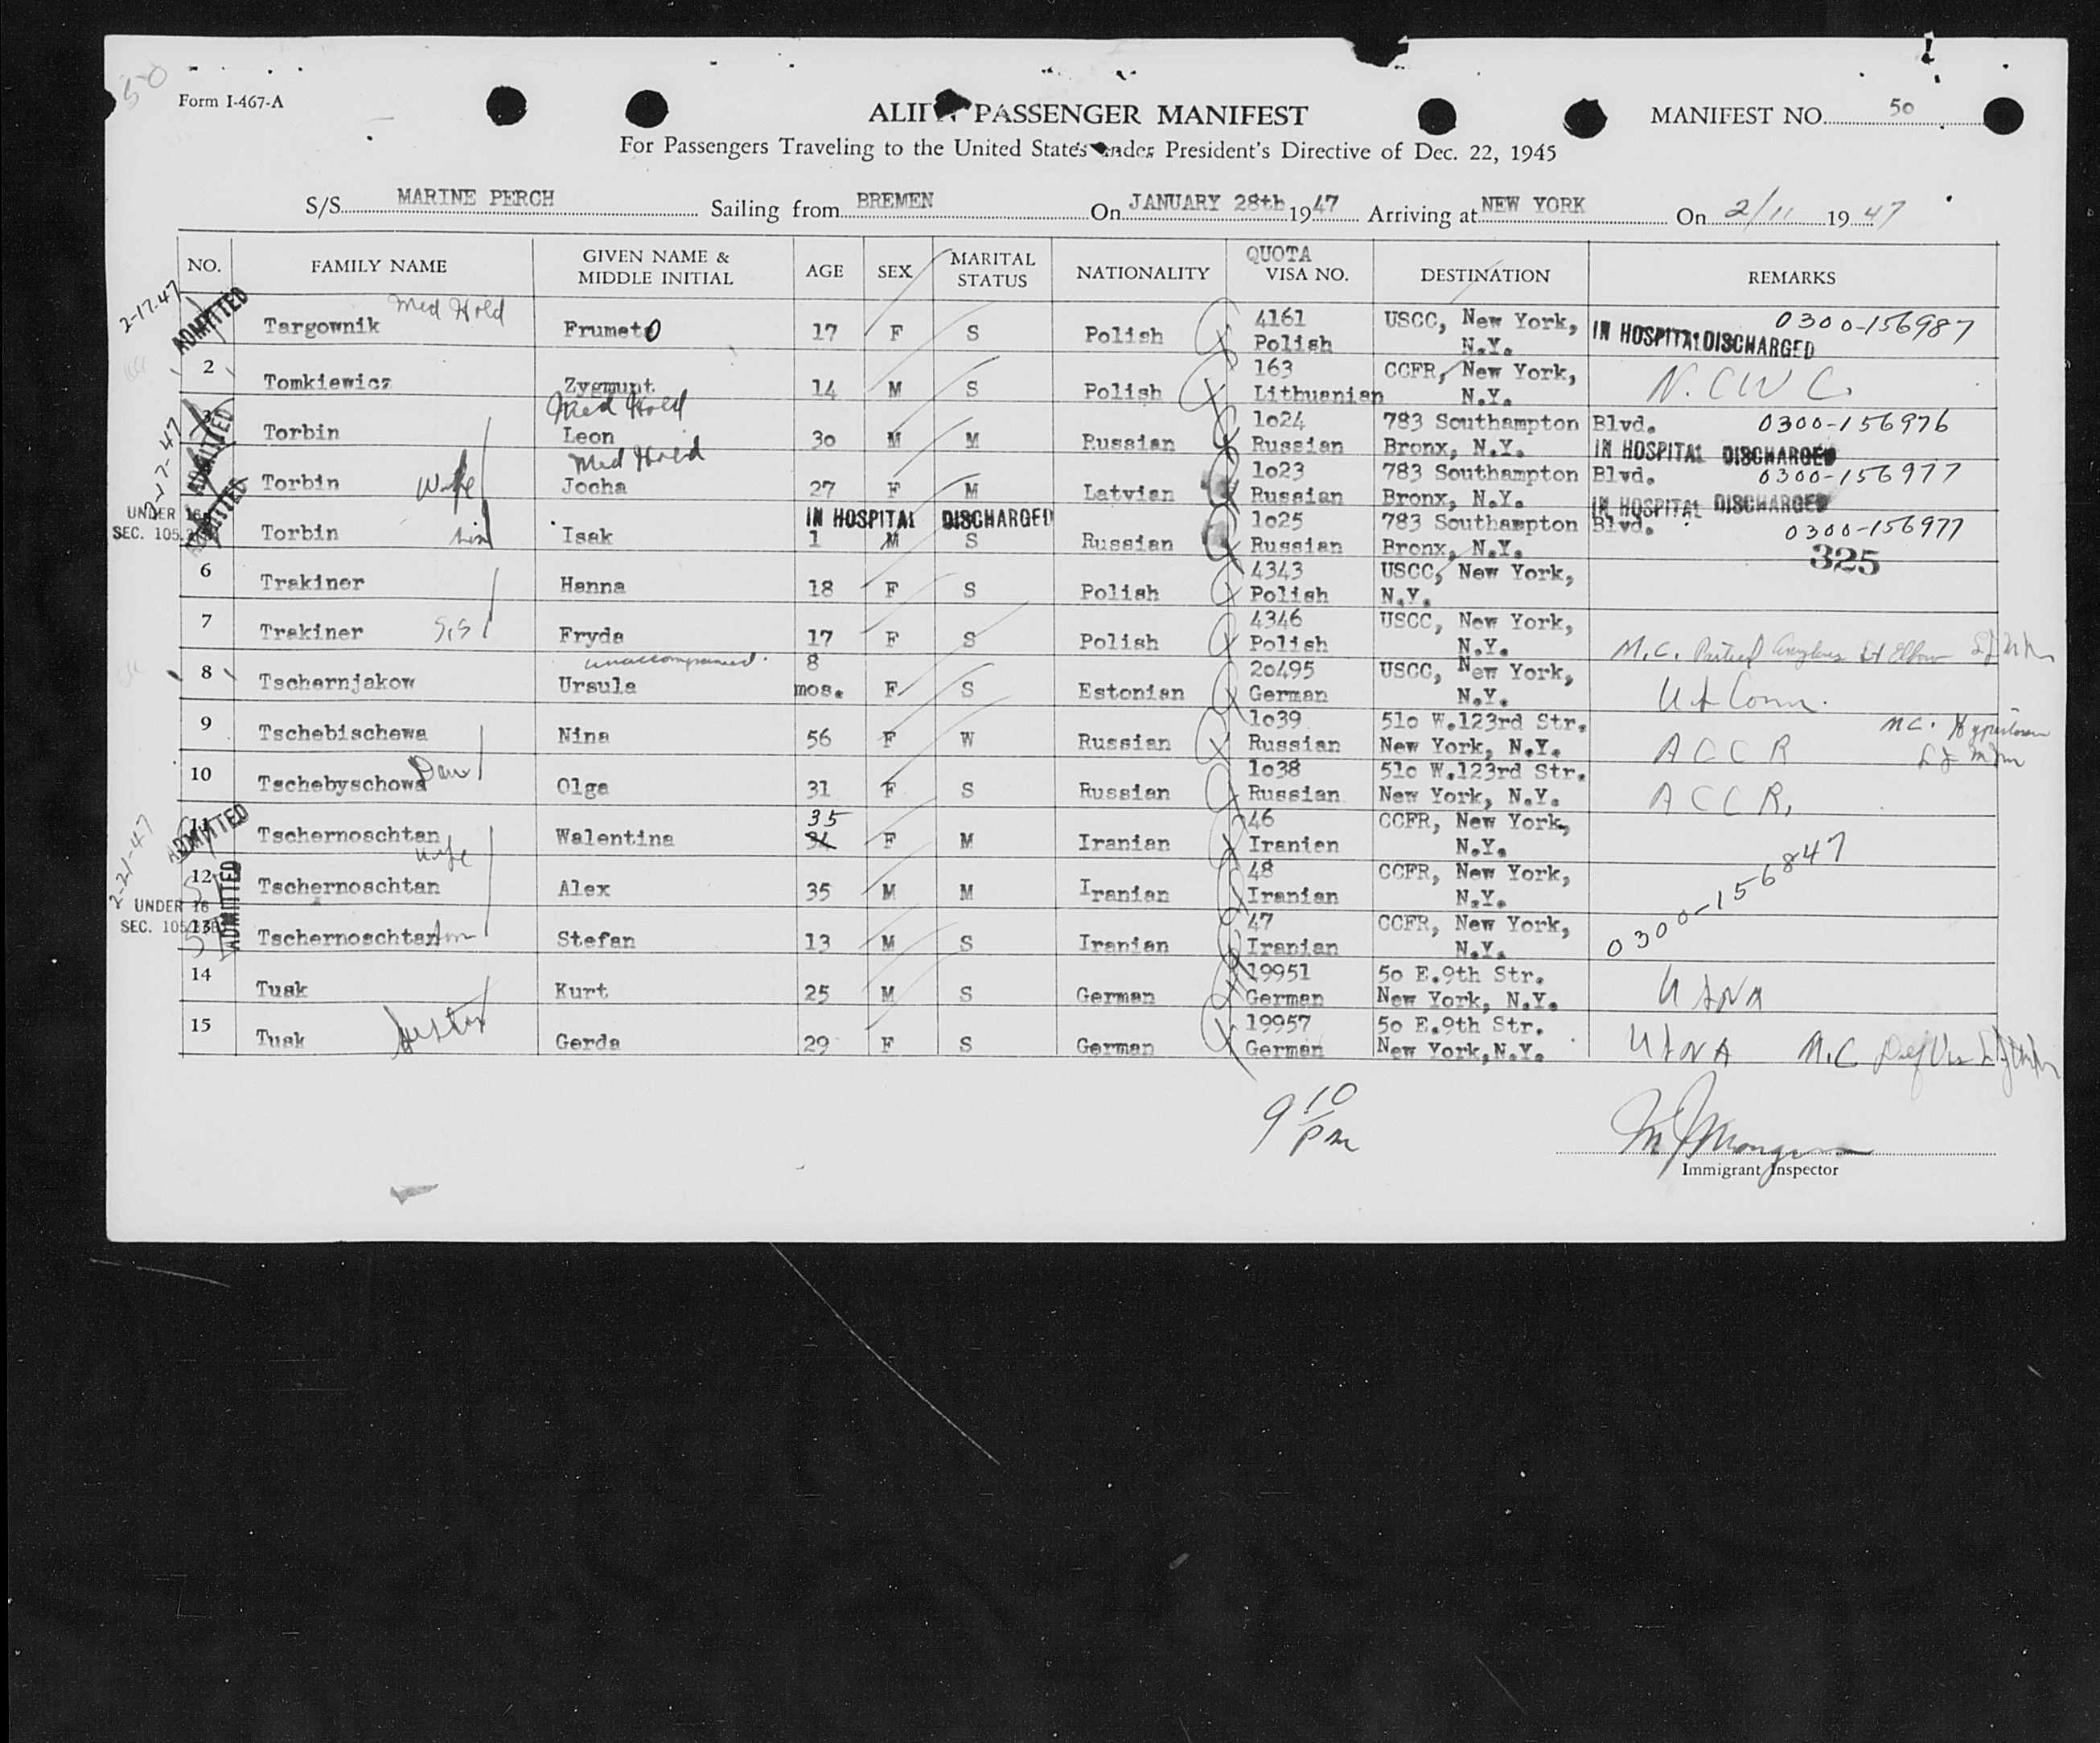 50
Form I-467-A
ALIEN PASSENGER MANIFEST
MANIFEST NO. 50
For Passengers Traveling to the United States under President's Directive of Dec. 22, 1945
S/S MARINE PERCH Sailing from BREMEN On JANUARY 28th 1947 Arriving at NEW YORK On 2/11 1947
NO. FAMILY NAME GIVEN NAME & MIDDLE INITIAL AGE SEX MARITAL STATUS NATIONALITY QUOTA VISA NO. DESTINATION REMARKS
2-17-47 ADMITTED Med Hold 4161 USCC, New York, 0300-156987
Targownik Frumeto 17 F S Polish Polish N.Y. IN HOSPITAL DISCHARGED
2 163 CCFR, New York,
Tomkiewicz Zygmunt 14 M S Polish Lithuanian N.Y. N.C.W.C.
3 ADMITTED Med Hold 1o24 783 Southampton Blvd. 0300-156976
2-17-47 Torbin Leon 3o M M Russian Russian Bronx, N.Y. IN HOSPITAL DISCHARGED
ADMITTED Med Hold 1o23 783 Southampton Blvd. 0300-156977
Torbin Wife Jocha 27 F M Latvian Russian Bronx, N.Y. IN HOSPITAL DISCHARGED
UNDER 16 IN HOSPITAL DISCHARGED 1o25 783 Southampton Blvd. 0300-156977
SEC. 105. Torbin Isak 1 M S Russian Russian Bronx, N.Y. 325
6 4343 USCC, New York,
Trakiner Hanna 18 F S Polish Polish N.Y.
7 4346 USCC, New York,
Trakiner Sis Fryda 17 F S Polish Polish N.Y. M.C. Elbow
8 unaccompanied. 8 20495 USCC, New York,
Tschernjakow Ursula mos. F S Estonian German N.Y. U S Comm.
9 1o39 51o W.123rd Str. M.C.
Tschebischewa Nina 56 F W Russian Russian New York, N.Y. A C C R
10 Dau 1o38 51o W.123rd Str.
Tschebyschowa Olga 31 F S Russian Russian New York, N.Y. A C C R.
11 ADMITTED 35 46 CCFR, New York,
Tschernoschtan wife Walentina 34 F M Iranian Iranien N.Y.
2-21-47 12 ADMITTED 48 CCFR, New York, 0300-156847
Tschernoschtan Alex 35 M M Iranian Iranian N.Y.
UNDER 16 13 47 CCFR, New York,
SEC. 105 Tschernoschtan Son Stefan 13 M S Iranian Iranian N.Y.
14 19951 5o E.9th Str.
Tusk Kurt 25 M S German German New York, N.Y. U S N A
15 19957 5o E.9th Str.
Tusk Sister Gerda 29 F S German German New York,N.Y. U S N A M.C
9 10 pm
Immigrant Inspector